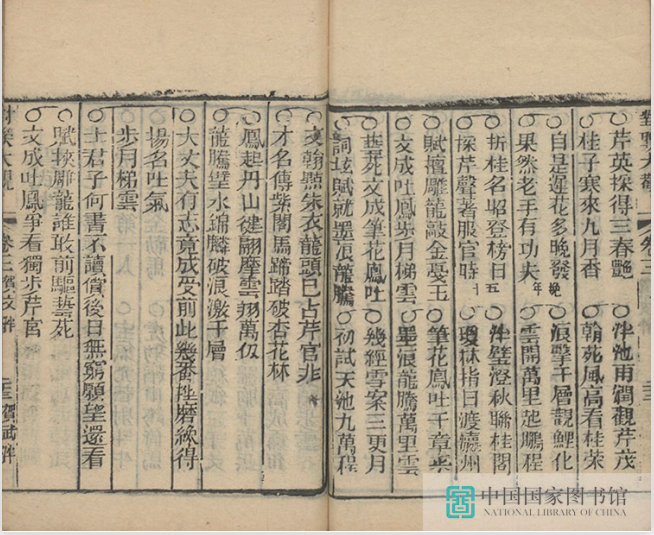 芹英採得三春艷　泮池雨潤觀芹茂
桂子寒來九月香　翰苑風高看桂榮
自是蓮花多晚發　浪擊千層靚鯉化
果然老手有功夫年　雲開萬里起鵬程
折桂名昭登榜日五　泮璧澄秋聯桂閣
採芹聲著服官時十　瓊林指日渡瀛州
賦擅雕龍敲金戛玉　筆花鳳吐千章采
文成吐鳳步月梯雲　墨浪龍騰萬里雲
藝苑文成筆花鳳吐　幾經雪案三更月
詞垓賦就墨浪龍騰　初試天池九萬程
文翰點朱衣龍頭已占芹宮兆
才名傳紫閣馬蹄踏破杏花林
鳳起丹山健翮摩雲翔萬仞
龍騰璧水錦麟破浪激千層
大丈夫有志竟成受前此幾番挫磨纔得
揚名吐氣
步月梯雲
士君子何書不讀償後日無窮願望還看
賦掞雕龍誰敢前驅藝苑
文成吐鳳爭看獨步芹宮
大觀　卷三
中国国家图书馆
NATIONAL LIBRARY OF CHINA